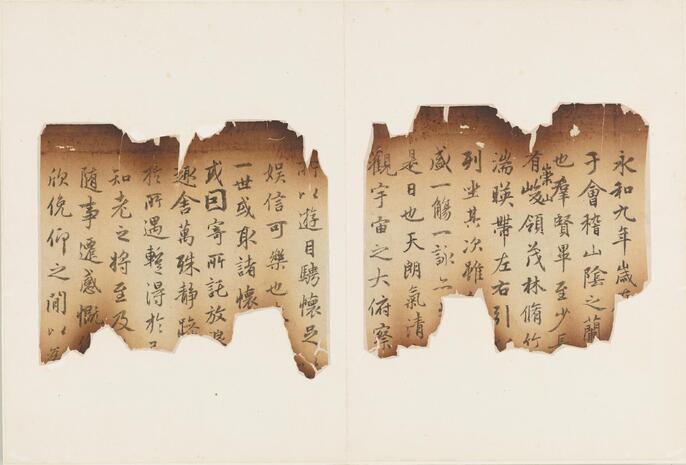 永和九年歲
于會稽山陰之蘭
也羣賢畢至少長
有崇山峻領茂林脩竹
湍暎帶左右引
列坐其次雖
盛一觴一詠
是日也天朗氣清
觀宇宙之大俯察
所以遊目騁懷足
娛信可樂也
一世或取諸懷
或因寄所託放浪
趣舍萬殊靜躁
於所遇輒得於
知老之將至及
隨事遷感慨
欣俛仰之間以